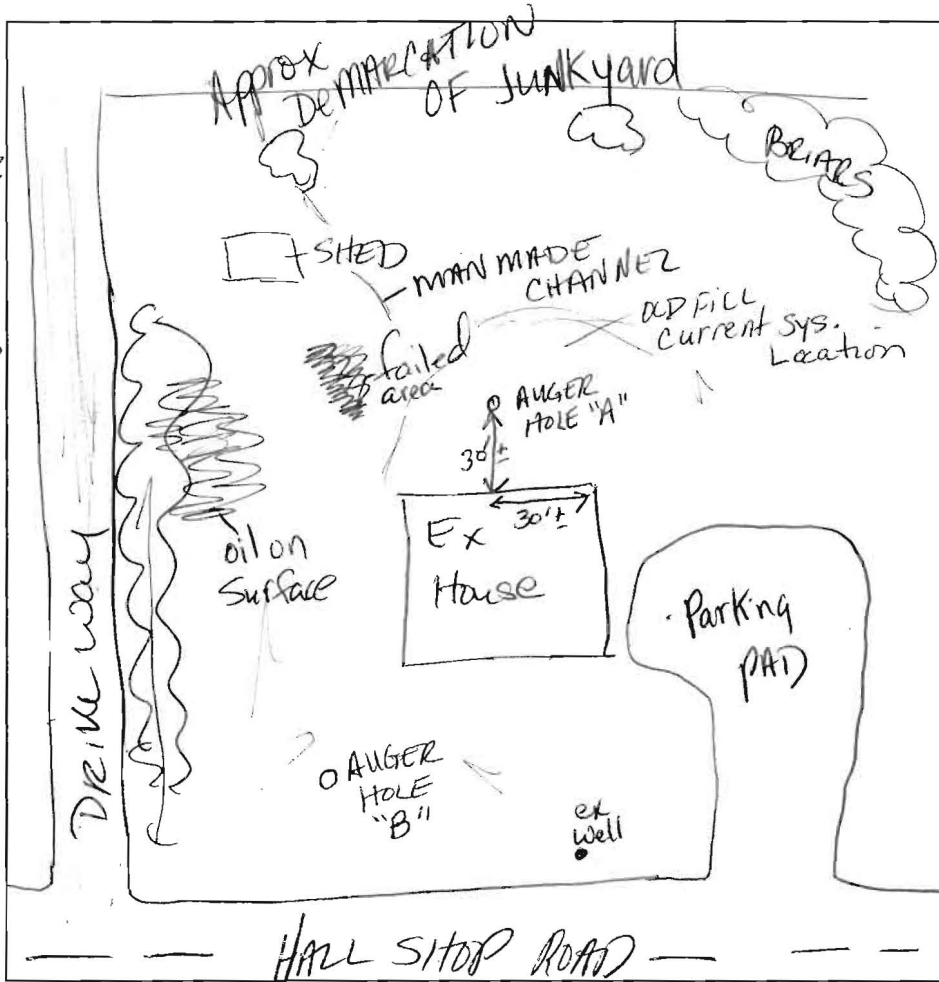 Approx
DEMARCATION
OF JUNKyard
BRIARS
SHED
MANMADE
CHANNEL
OLD FILL
Current Sys.
Location
failed
area
AUGER
HOLE "A"
30'±
30'±
Ex
House
oil on
Surface
Parking
PAD
DRIVEWAY
AUGER
HOLE
"B"
ex
well
HALL SHOP ROAD